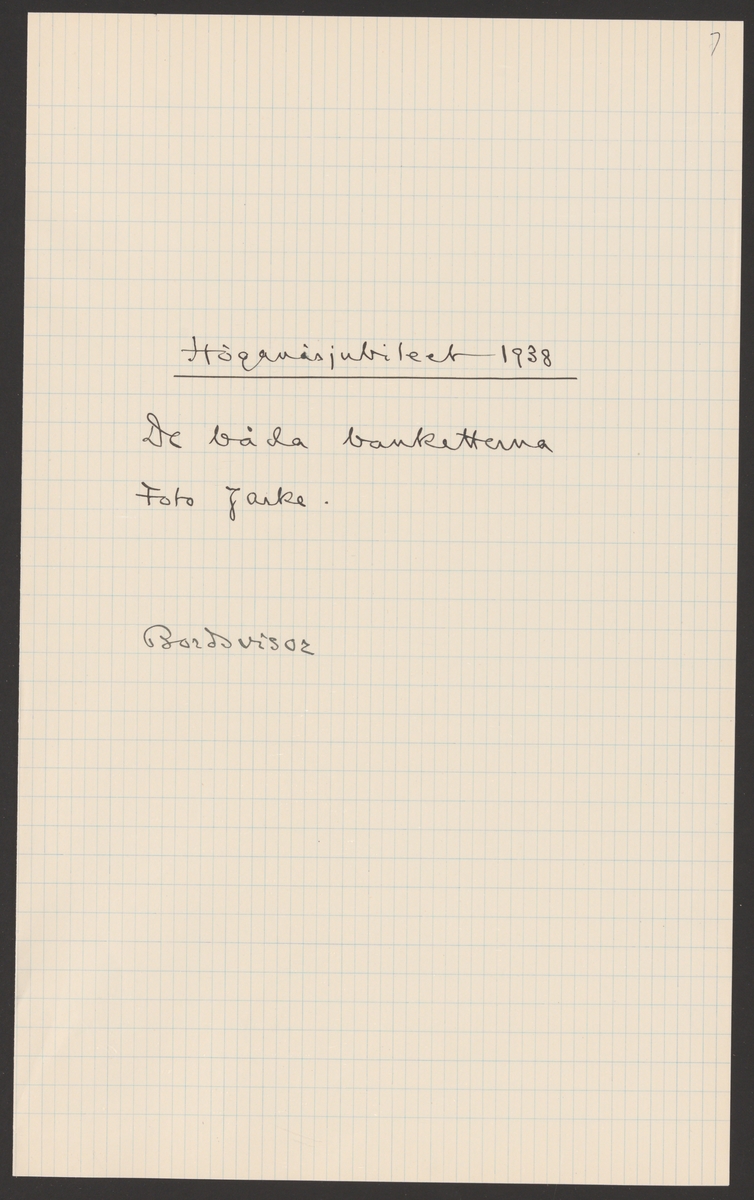 7
Höganäsjubileet 1938
De båda banketterna
Foto Jarke.
Bordsvisor